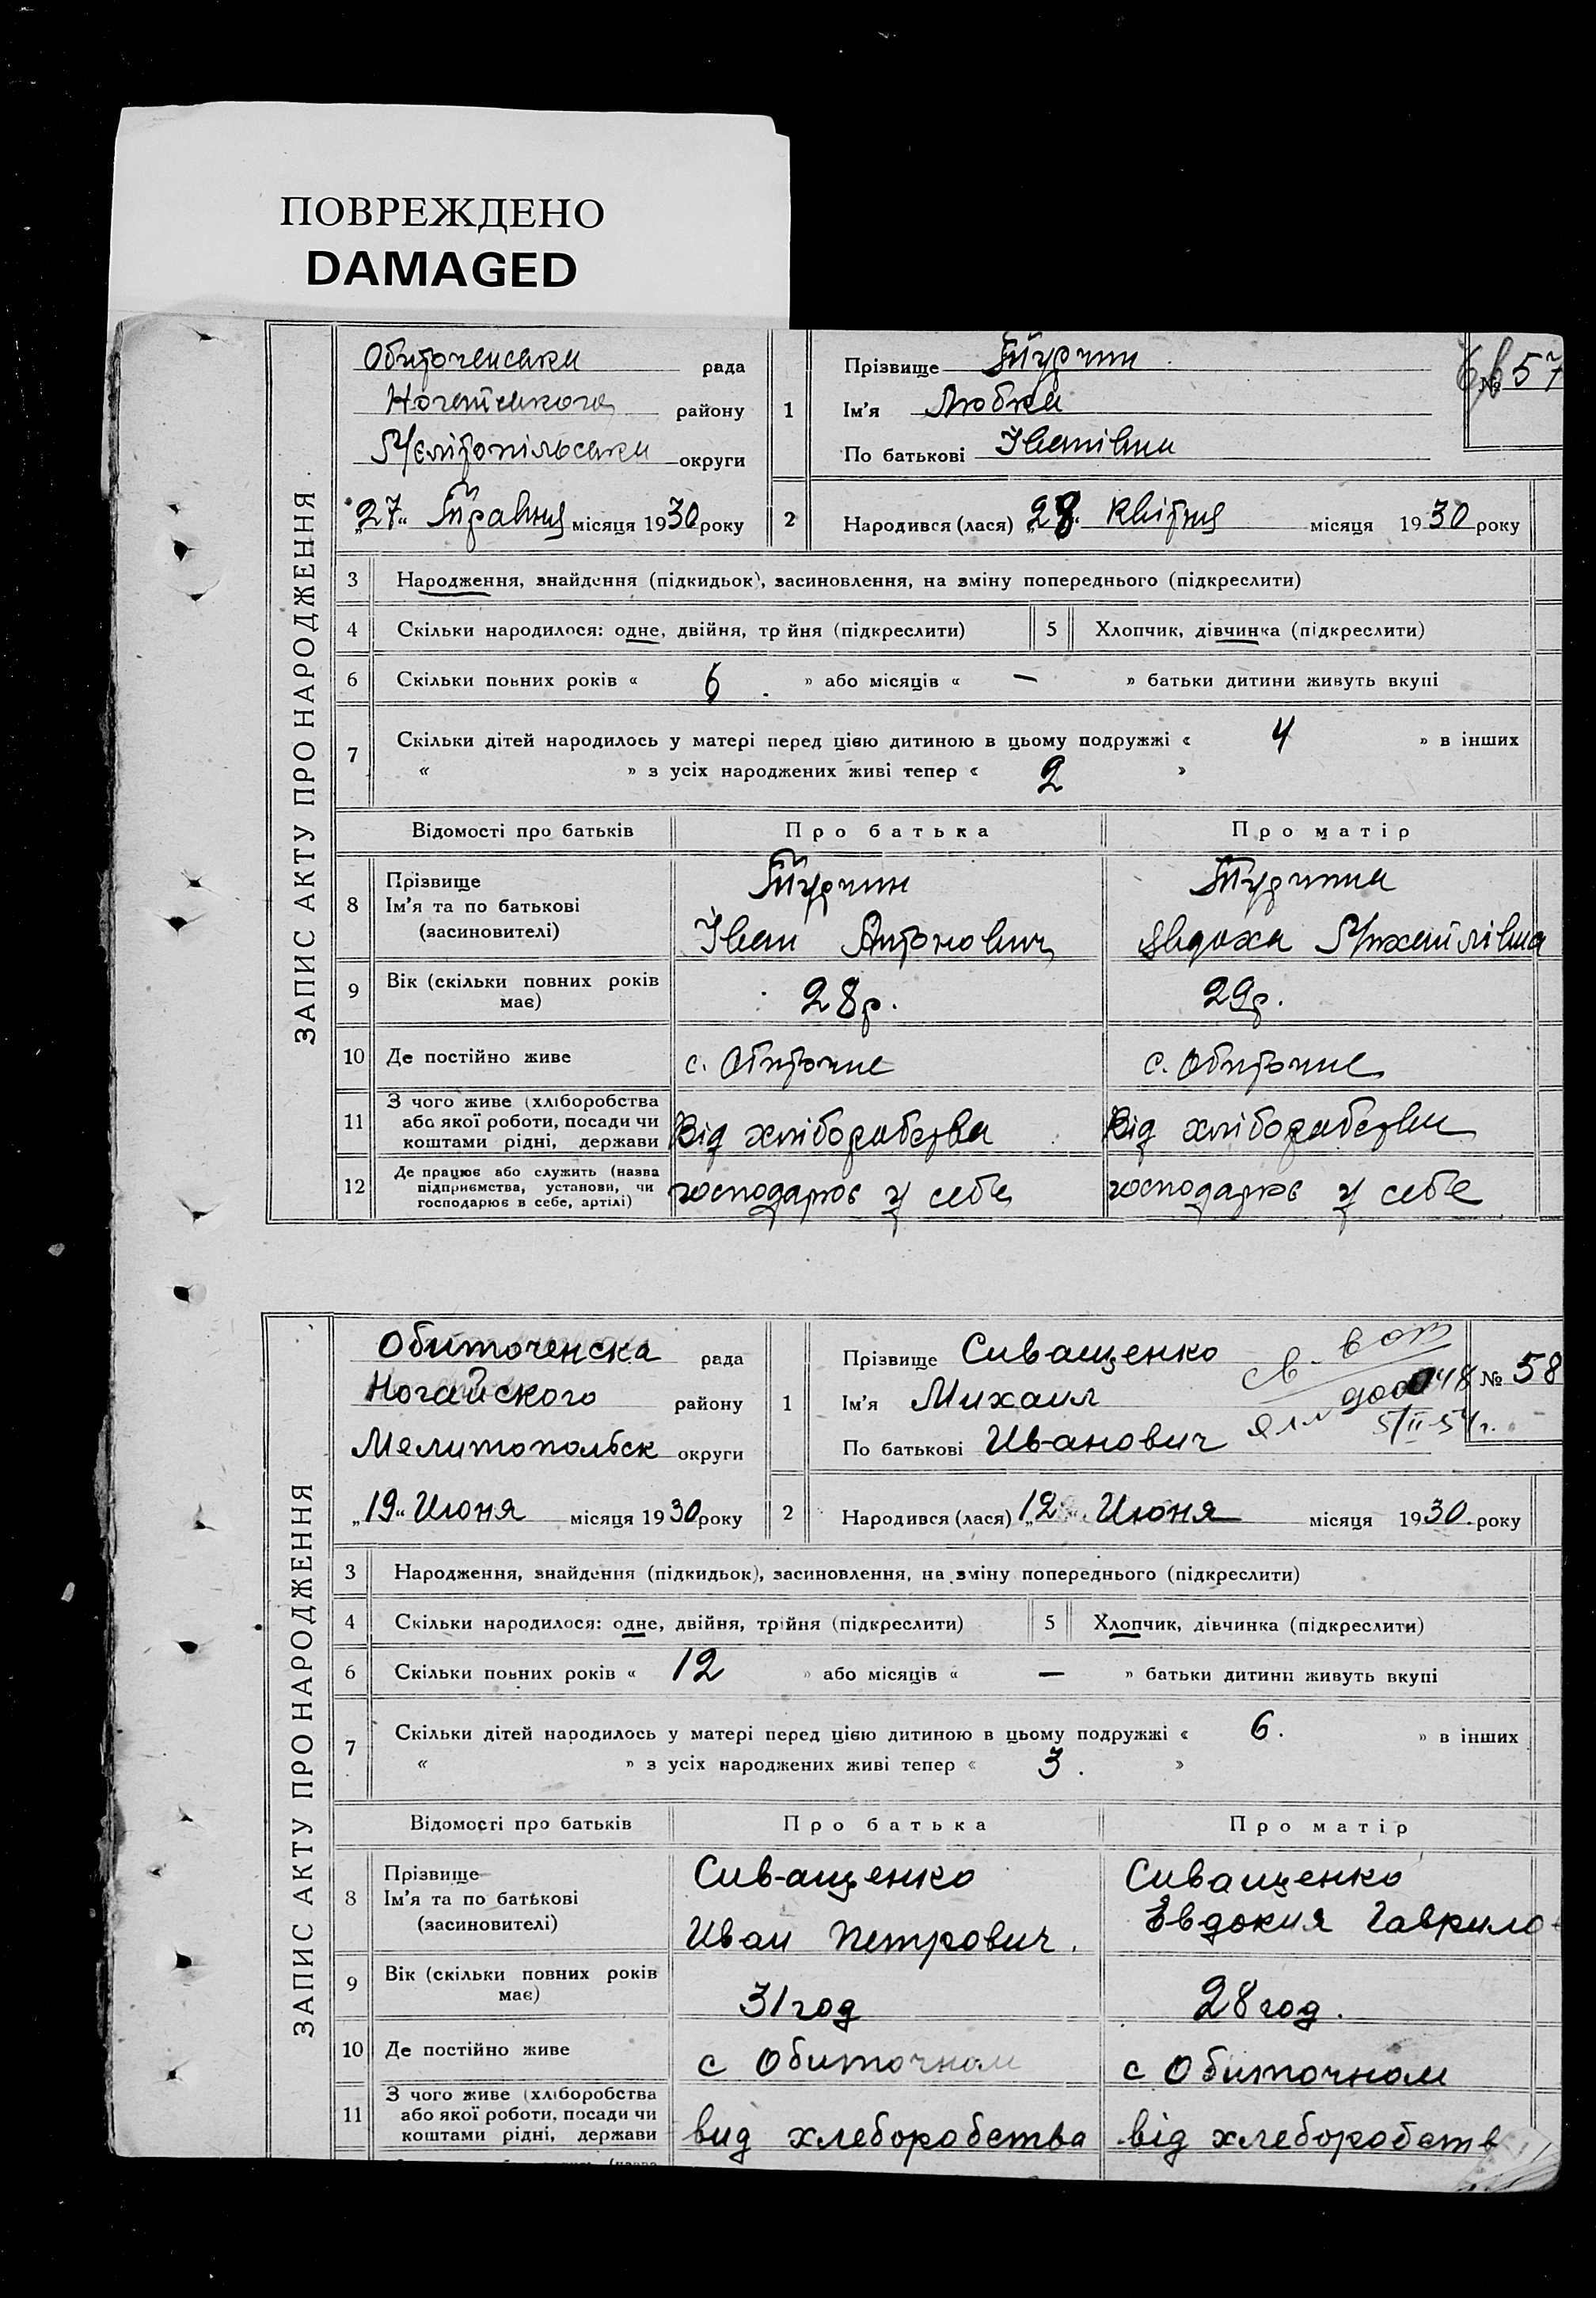 ПОВРЕЖДЕНО
DAMAGED
ЗАПИС АКТУ ПРО НАРОДЖЕННЯ
Обиточенська рада
Ногайського району
Мелітопільська округи
„27“ Травня місяця 1930 року
1
Прізвище Турчин
Ім'я Любка
По батькові Іванівна
№ 57
2
Народився (лася) „28“ Квітня місяця 1930 року
3 Народження, знайдення (підкидьок), засиновлення, на зміну попереднього (підкреслити)
4 Скільки народилося: одне, двійня, трійня (підкреслити) 5 Хлопчик, дівчинка (підкреслити)
6 Скільки повних років « 6 » або місяців « — » батьки дитини живуть вкупі
7 Скільки дітей народилось у матері перед цією дитиною в цьому подружжі « 4 » в інших
« » з усіх народжених живі тепер « 2 »
Відомості про батьків Про батька Про матір
8 Прізвище Турчин Турчина
Ім'я та по батькові
(засиновителі) Іван Антонович Явдоха Михайлівна
9 Вік (скільки повних років має) 28 р. 29 р.
10 Де постійно живе с. Обиточне с. Обиточне
11 З чого живе (хліборобства
або якої роботи, посади чи
коштами рідні, держави Від хліборобства Від хліборобства
12 Де працює або служить (назва
підприємства, установи, чи
господарює в себе, артілі) господарює у себе господарює у себе
ЗАПИС АКТУ ПРО НАРОДЖЕННЯ
Обиточенска рада
Ногайского району
Мелитопольск округи
„19“ Июня місяця 1930 року
1
Прізвище Сиващенко
Ім'я Михаил
По батькові Иванович
№ 58
5/II-54 г.
2
Народився (лася) „12“ Июня місяця 1930 року
3 Народження, знайдення (підкидьок), засиновлення, на зміну попереднього (підкреслити)
4 Скільки народилося: одне, двійня, трійня (підкреслити) 5 Хлопчик, дівчинка (підкреслити)
6 Скільки повних років « 12 » або місяців « — » батьки дитини живуть вкупі
7 Скільки дітей народилось у матері перед цією дитиною в цьому подружжі « 6. » в інших
« » з усіх народжених живі тепер « 3. »
Відомості про батьків Про батька Про матір
8 Прізвище Сиващенко Сиващенко
Ім'я та по батькові
(засиновителі) Иван Петрович. Евдокия Гаврило
9 Вік (скільки повних років має) 31 год 28 год.
10 Де постійно живе с Обиточном с Обиточном
11 З чого живе (хліборобства
або якої роботи, посади чи
коштами рідні, держави вид хлеборобства від хлеборобств